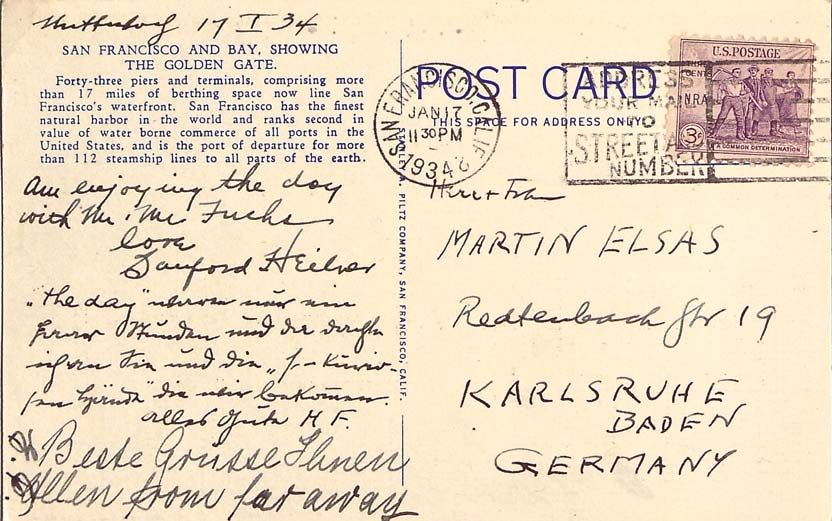 17 I 34
SAN FRANCISCO AND BAY, SHOWING
THE GOLDEN GATE.
Forty-three piers and terminals, comprising more
than 17 miles of berthing space now line San
Francisco's waterfront. San Francisco has the finest
natural harbor in the world and ranks second in
value of water borne commerce of all ports in the
United States, and is the port of departure for more
than 112 steamship lines to all parts of the earth.
Am enjoying the day
with Mr. Mr Fuchs
love
Sanford
"the day" waren nur ein
paar Stunden und da dachte
ich an Sie und die
die wir bekommen.
alles Gute H F.
Beste Grüsse Ihnen
Allen from far away
STANLEY A. PILTZ COMPANY, SAN FRANCISCO, CALIF.
POST CARD
THIS SPACE FOR ADDRESS ONLY
SAN FRANCISCO, CALIF.
JAN 17
11 30 PM
1934
ADDRESS
YOUR MAIL
TO
STREET AND
NUMBER
U.S. POSTAGE
THREE
CENTS
N.R.A.
3¢
IN A COMMON DETERMINATION
Herr + Frau
MARTIN ELSAS
Redtenbach Str 19
KARLSRUHE
BADEN
GERMANY